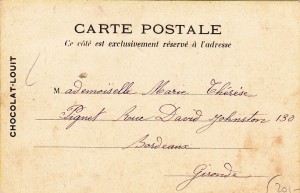 CARTE POSTALE
Ce côté est exclusivement réservé à l'adresse
CHOCOLAT-LOUIT
Mademoiselle Marie Thérèse
Piquet Rue David Johnston 130
Bordeaux
Gironde